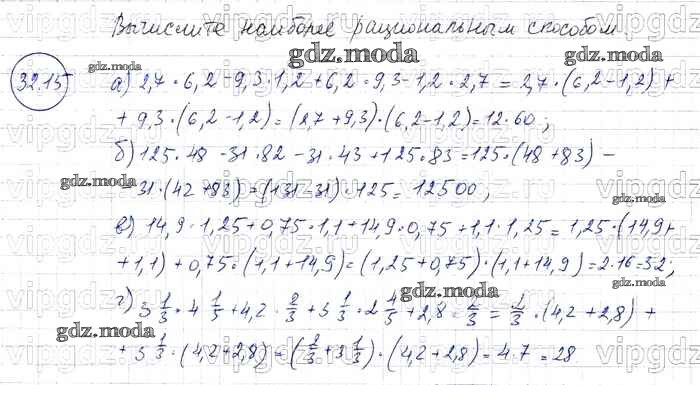 Вычислите наиболее рациональным способом.
32.15 а) 2,7 · 6,2 - 9,3 · 1,2 + 6,2 · 9,3 - 1,2 · 2,7 = 2,7 · (6,2 - 1,2) +
+ 9,3 · (6,2 - 1,2) = (2,7 + 9,3) · (6,2 - 1,2) = 12 · 60;
б) 125 · 48 - 31 · 82 - 31 · 43 + 125 · 83 = 125 · (48 + 83) -
- 31 · (42 + 83) = (131 - 31) · 125 = 12500;
в) 14,9 · 1,25 + 0,75 · 1,1 + 14,9 · 0,75 + 1,1 · 1,25 = 1,25 · (14,9 +
+ 1,1) + 0,75 · (1,1 + 14,9) = (1,25 + 0,75) · (1,1 + 14,9) = 2 · 16 = 32;
г) 3 1/3 · 4 1/5 + 4,2 · 2/3 + 3 1/3 · 2 4/5 + 2,8 · 2/3 = 2/3 · (4,2 + 2,8) +
+ 3 1/3 · (4,2 + 2,8) = (2/3 + 3 1/3) · (4,2 + 2,8) = 4 · 7 = 28
gdz.moda
gdz.moda
gdz.moda
gdz.moda
gdz.moda
gdz.moda
gdz.moda
gdz.moda
gdz.moda